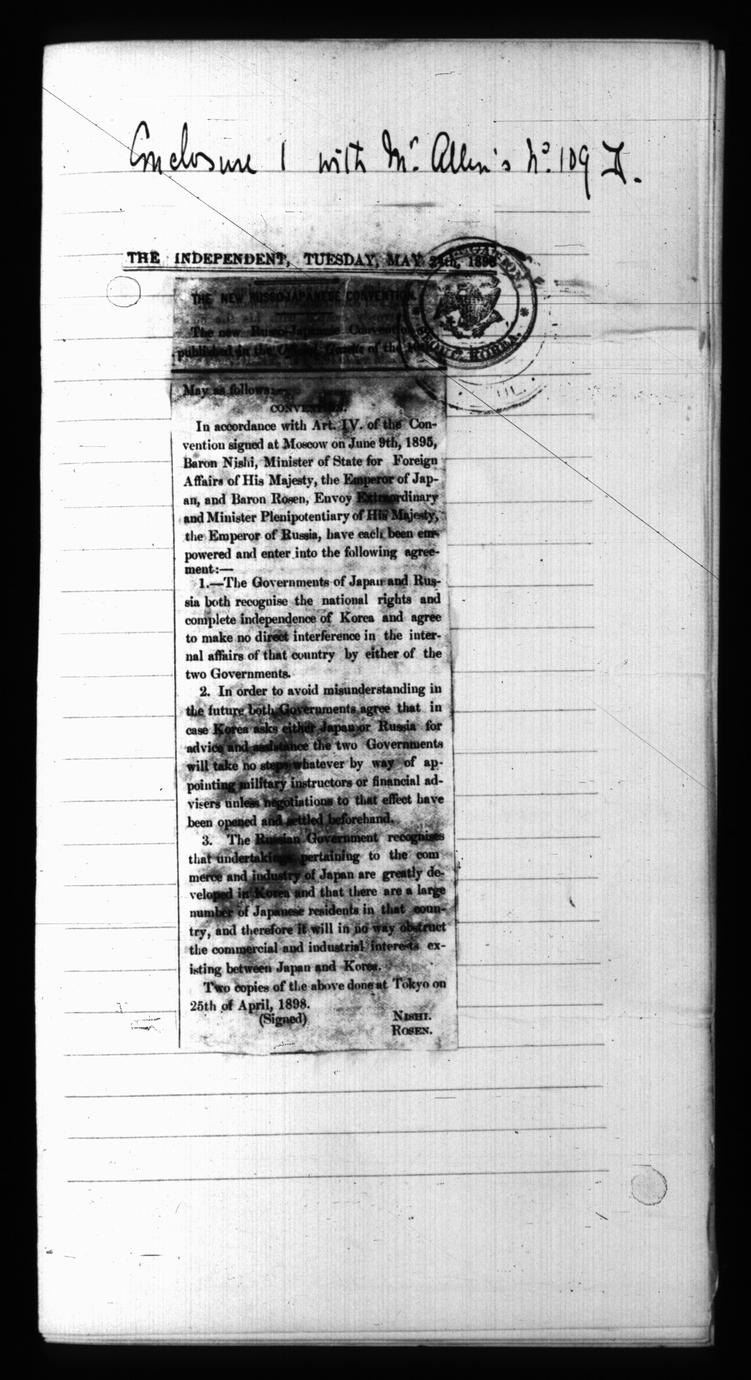 Enclosure 1 with Mr. Allen's No. 109
THE INDEPENDENT, TUESDAY, MAY 24th, 1898
THE NEW RUSSO-JAPANESE CONVENTION.
The new Russo-Japanese Convention
published in the Official Gazette of the
May as follows:—
CONVENTION.
In accordance with Art. IV. of the Con-
vention signed at Moscow on June 9th, 1895,
Baron Nishi, Minister of State for Foreign
Affairs of His Majesty, the Emperor of Jap-
an, and Baron Rosen, Envoy Extraordinary
and Minister Plenipotentiary of His Majesty,
the Emperor of Russia, have each been em-
powered and enter into the following agree-
ment:—
1.—The Governments of Japan and Rus-
sia both recognise the national rights and
complete independence of Korea and agree
to make no direct interference in the inter-
nal affairs of that country by either of the
two Governments.
2. In order to avoid misunderstanding in
the future both Governments agree that in
case Korea asks either Japan or Russia for
advice and assistance the two Governments
will take no steps whatever by way of ap-
pointing military instructors or financial ad-
visers unless negotiations to that effect have
been opened and settled beforehand.
3. The Russian Government recognises
that undertakings pertaining to the com
merce and industry of Japan are greatly de-
veloped in Korea and that there are a large
number of Japanese residents in that coun-
try, and therefore it will in no way obstruct
the commercial and industrial interests ex-
isting between Japan and Korea.
Two copies of the above done at Tokyo on
25th of April, 1898.
(Signed) NISHI.
ROSEN.